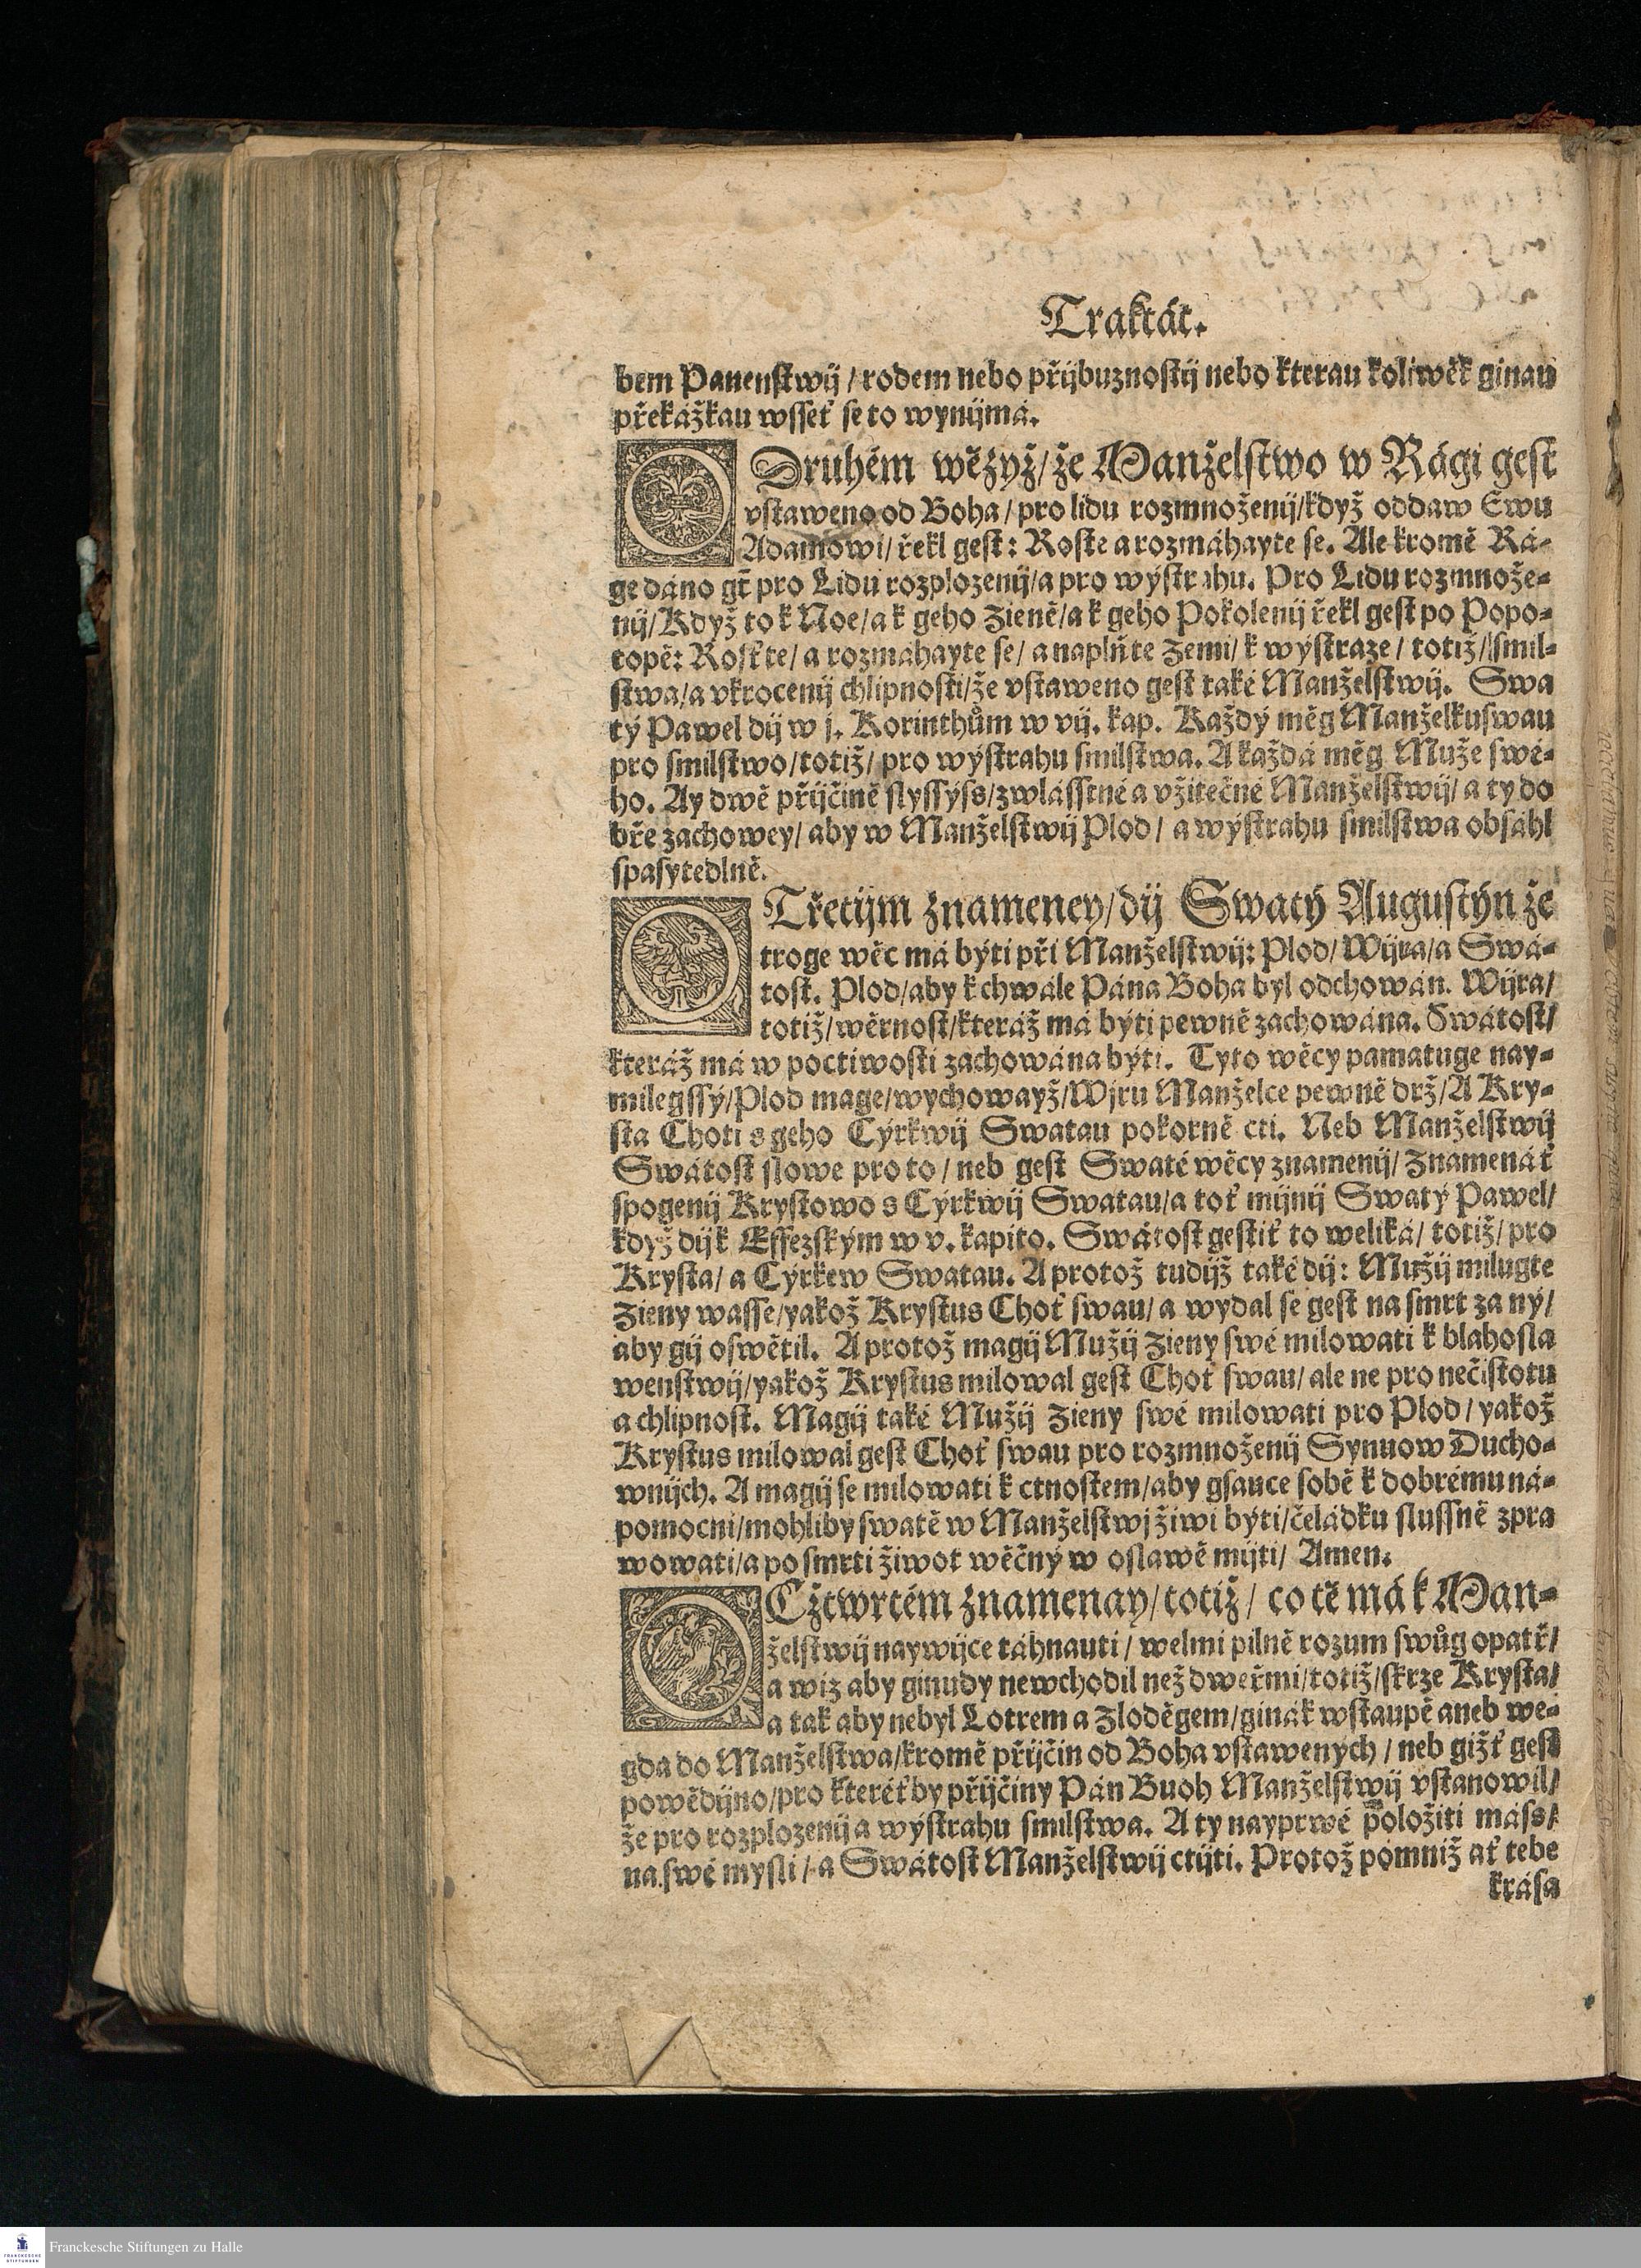 Traktát.
bem Panenstwij / rodem nebo přijbuznostij nebo kterau koliwěk ginau
překážkau wsseť se to wynijmá.
O Druhém wězyž/ že Manželstwo w Rági gest
vstaweno od Boha / pro lidu rozmnoženij/ když oddaw Ewu
Adamowi/ řekl gest: Roste a rozmáhayte se. Ale kromě Rá-
ge dáno gt̄ pro Lidu rozplozenij/ a pro wýstrahu. Pro Lidu rozmnože-
nij/ Když to k Noe/ a k geho Zieně/ a k geho Pokolenij řekl gest po Popo-
topě: Rosťte/ a rozmahayte se/ a naplňte Zemi/ k wýstraze / totiž/ smil-
stwa/ a vkrocenij chlipnosti/ že vstaweno gest také Manželstwij. Swa
tý Pawel dij w j. Korinthům w vij. kap. Každý měg Manželku swau
pro smilstwo/ totiž/ pro wýstrahu smilstwa. A každá měg Muže swé-
ho. Ay dwě přijčině slyssýs/ zwlásstné a vžitečné Manželstwij/ a ty do
bře zachowey/ aby w Manželstwij Plod / a wýstrahu smilstwa obsáhl
spasytedlně.
O Třetijm znameney/ dij Swatý Augustýn že
troge wěc má býti při Manželstwij: Plod/ Wijra/ a Swá-
tost. Plod/ aby k chwále Pána Boha byl odchowán. Wijra/
totiž/ wěrnost/ kteráž má býti pewně zachowána. Swátost/
kteráž má w poctiwosti zachowána býti. Tyto wěcy pamatuge nay-
milegssý/ Plod mage/ wychowayž/ Wjru Manželce pewně drž/ A Kry-
sta Choti s geho Cýrkwij Swatau pokorně cti. Neb Manželstwij
Swátost slowe pro to / neb gest Swaté wěcy znamenij/ Znamenáť
spogenij Krystowo s Cýrkwij Swatau/ a toť mijnij Swatý Pawel/
když dij k Effezským w v. kapito. Swátost gestiť to weliká/ totiž/ pro
Krysta/ a Cýrkew Swatau. A protož tudijž také dij: Mužij milugte
Zieny wasse/ yakož Krystus Choť swau/ a wydal se gest na smrt za ny/
aby gij oswětil. A protož magij Mužij Zieny swé milowati k blahosla
wenstwij/ yakož Krystus milowal gest Choť swau/ ale ne pro nečistotu
a chlipnost. Magij také Mužij Zieny swé milowati pro Plod / yakož
Krystus milowal gest Choť swau pro rozmnoženij Synuow Ducho-
wnijch. A magij se milowati k ctnostem/ aby gsauce sobě k dobrému ná-
pomocni/ mohliby swatě w Manželstwj žiwi býti/ čeládku slussně zpra
wowati/ a po smrti žiwot wěčný w oslawě mijti/ Amen.
O Cžtwrtém znamenay/ totiž / co tě má k Man-
želstwij naywijce táhnauti / welmi pilně rozum swůg opatř/
a wiz aby ginudy newchodil než dweřmi/ totiž/ skrze Krysta/
a tak aby nebyl Lotrem a Zlodějem/ ginák wstaupě aneb we-
gda do Manželstwa/ kromě přijčin od Boha vstawených / neb gižť gest
powědijno/ pro kteréťby přijčiny Pán Buoh Manželstwij vstanowil/
že pro rozplozenij a wýstrahu smilstwa. A ty nayprwé položiti máss/
na swé mysli / a Swátost Manželstwij ctijti. Protož pomniž ať tebe
krása
Franckesche Stiftungen zu Halle